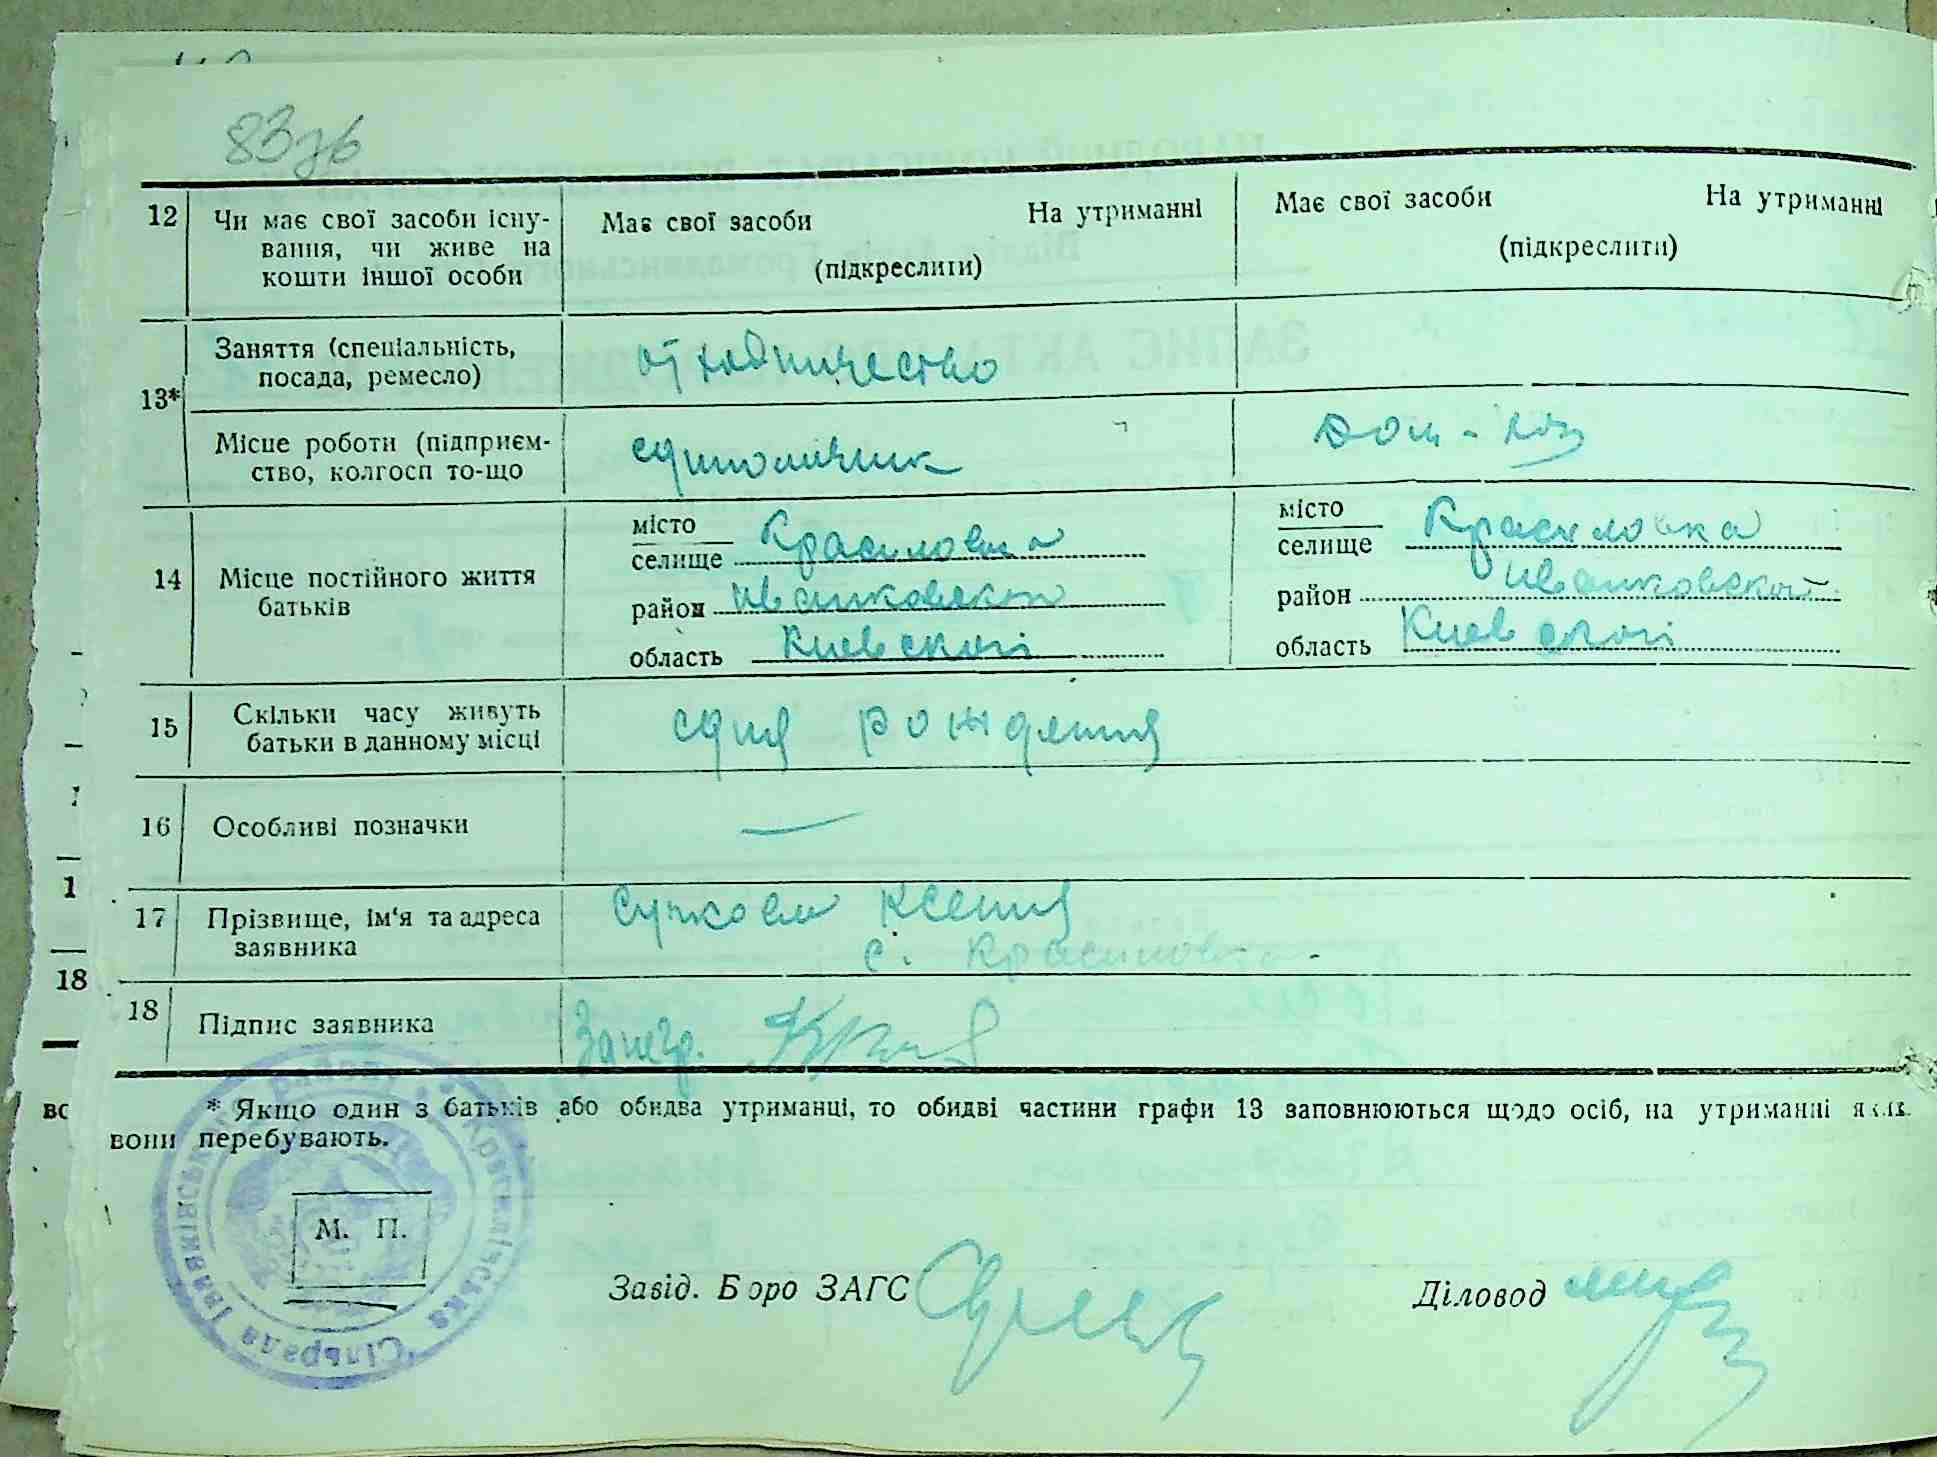 83зв
12 Чи має свої засоби існу-
вання, чи живе на
кошти іншої особи
Має свої засоби На утриманні
(підкреслити)
Має свої засоби На утриманні
(підкреслити)
13*
Заняття (спеціальність,
посада, ремесло)
отходничество
Місце роботи (підприєм-
ство, колгосп то-що
единоличник
Дом-хоз
14 Місце постійного життя
батьків
місто
селище Красиловка
район иванковской
область Киевской
місто
селище Красиловка
район иванковской
область Киевской
15 Скільки часу живуть
батьки в данному місці
сдня рождения
16 Особливі позначки
—
17 Прізвище, ім'я та адреса
заявника
Ксения
с. Красиловка
18 Підпис заявника
18
1
* Якщо один з батьків або обидва утриманці, то обидві частини графи 13 заповнюються щодо осіб, на утриманні яких
вони перебувають.
М. П.
Завід. Бюро ЗАГС
Діловод
Сільрада